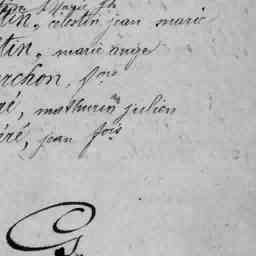 tin, célestin jean marie
tin, marie ange
rchon, fois
ré, mathurin julien
éré, jean fois
G